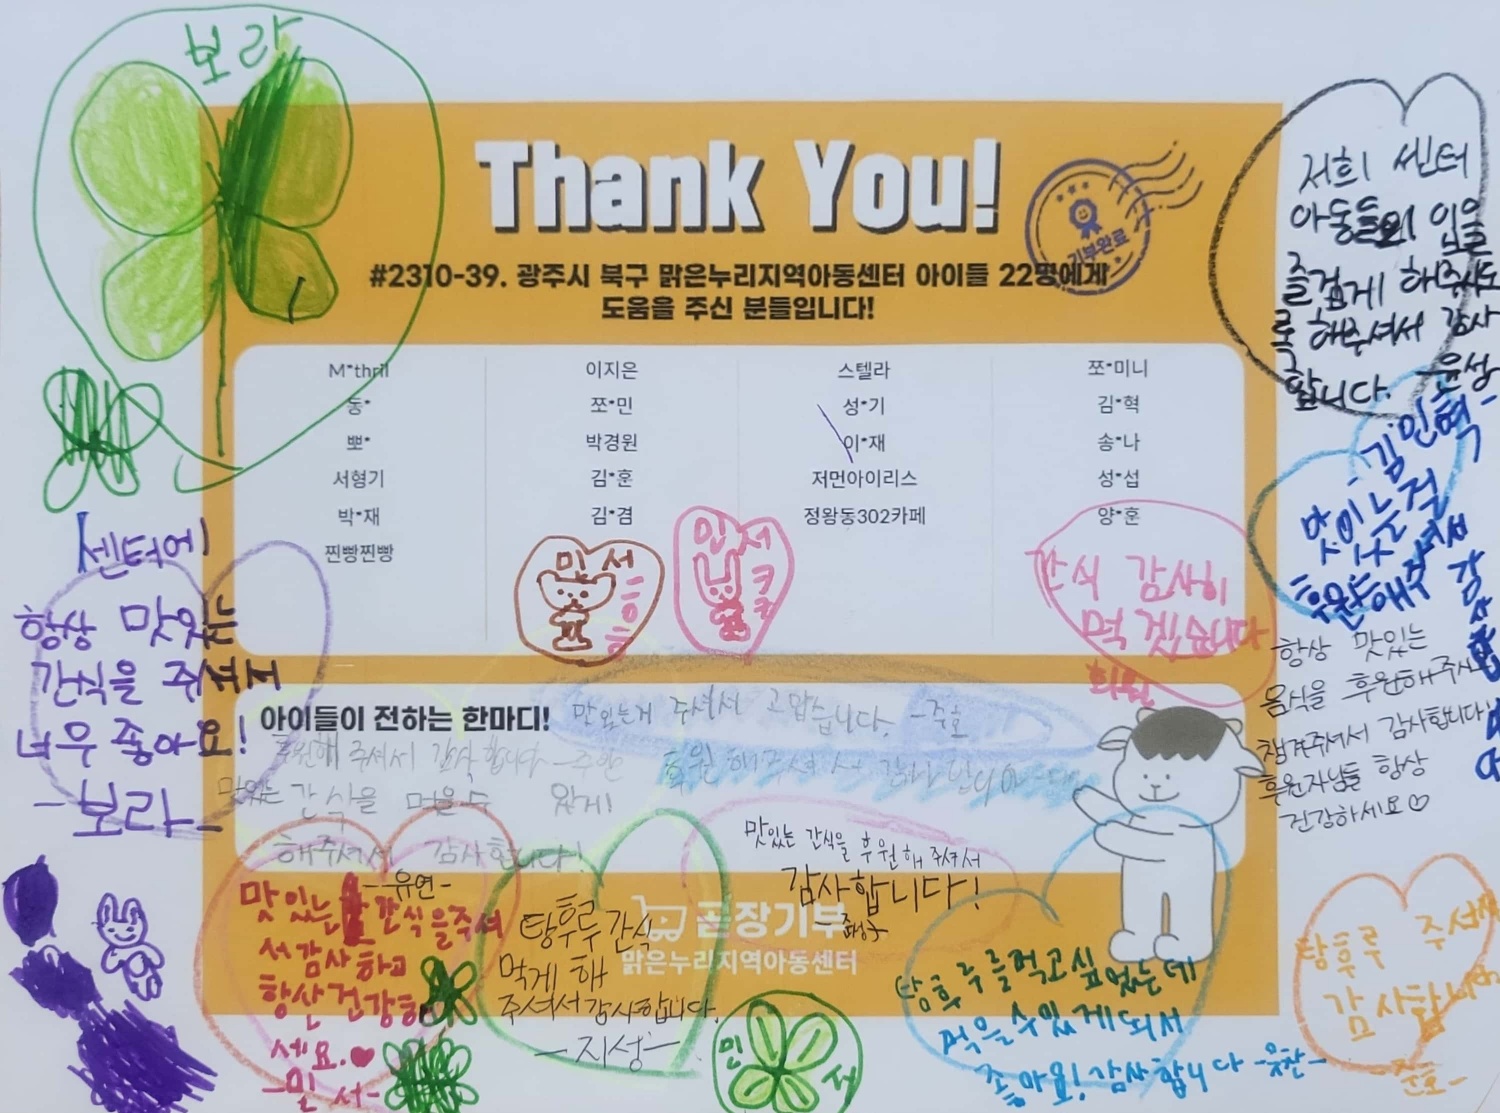 보라
Thank You!
기부완료
#2310-39. 광주시 북구 맑은누리지역아동센터 아이들 22명에게
도움을 주신 분들입니다!
M*thrill 이지은 스텔라 쪼*미니
동* 쪼*민 성*기 김*혁
뽀* 박경원 이*재 송*나
서형기 김*훈 저먼아이리스 성*섭
박*재 김*겸 정왕동302카페 양*훈
찐빵찐빵
민서
흐흐흐
민서
간식 감사히
먹겠습니다
저희 센터
아동들의 입을
즐겁게 해주시도
록 해주셔서 감사
합니다. -윤성
김민혁-
맛있는걸
후원해주셔서
감사
센터에
항상 맛있는
간식을 주셔도
너무 좋아요!
-보라-
항상 맛있는
음식을 후원해주시고
챙겨주셔서 감사합니다
후원자님들 항상
건강하세요♡
아이들이 전하는 한마디!
맛있는게 주셔서 고맙습니다. -준호
후원해 주셔서 감사합니다
후원해주셔서
맛있는 간식을 먹을수 있게!
해주셔서 감사합니다!
-유연-
맛있는 간식을 후원해 주셔서
감사합니다!
맛있는 간식을주셔
서감사하고
항상건강하
세요.♥
-민서-
탕후루간식
먹게 해
주셔서감사합니다.
-지성-
곧장기부
맑은누리지역아동센터
민서
탕후루를먹고싶었는데
먹을수있게되서
좋아요! 감사합니다
탕후루 주셔서
감사합니다
-준호-